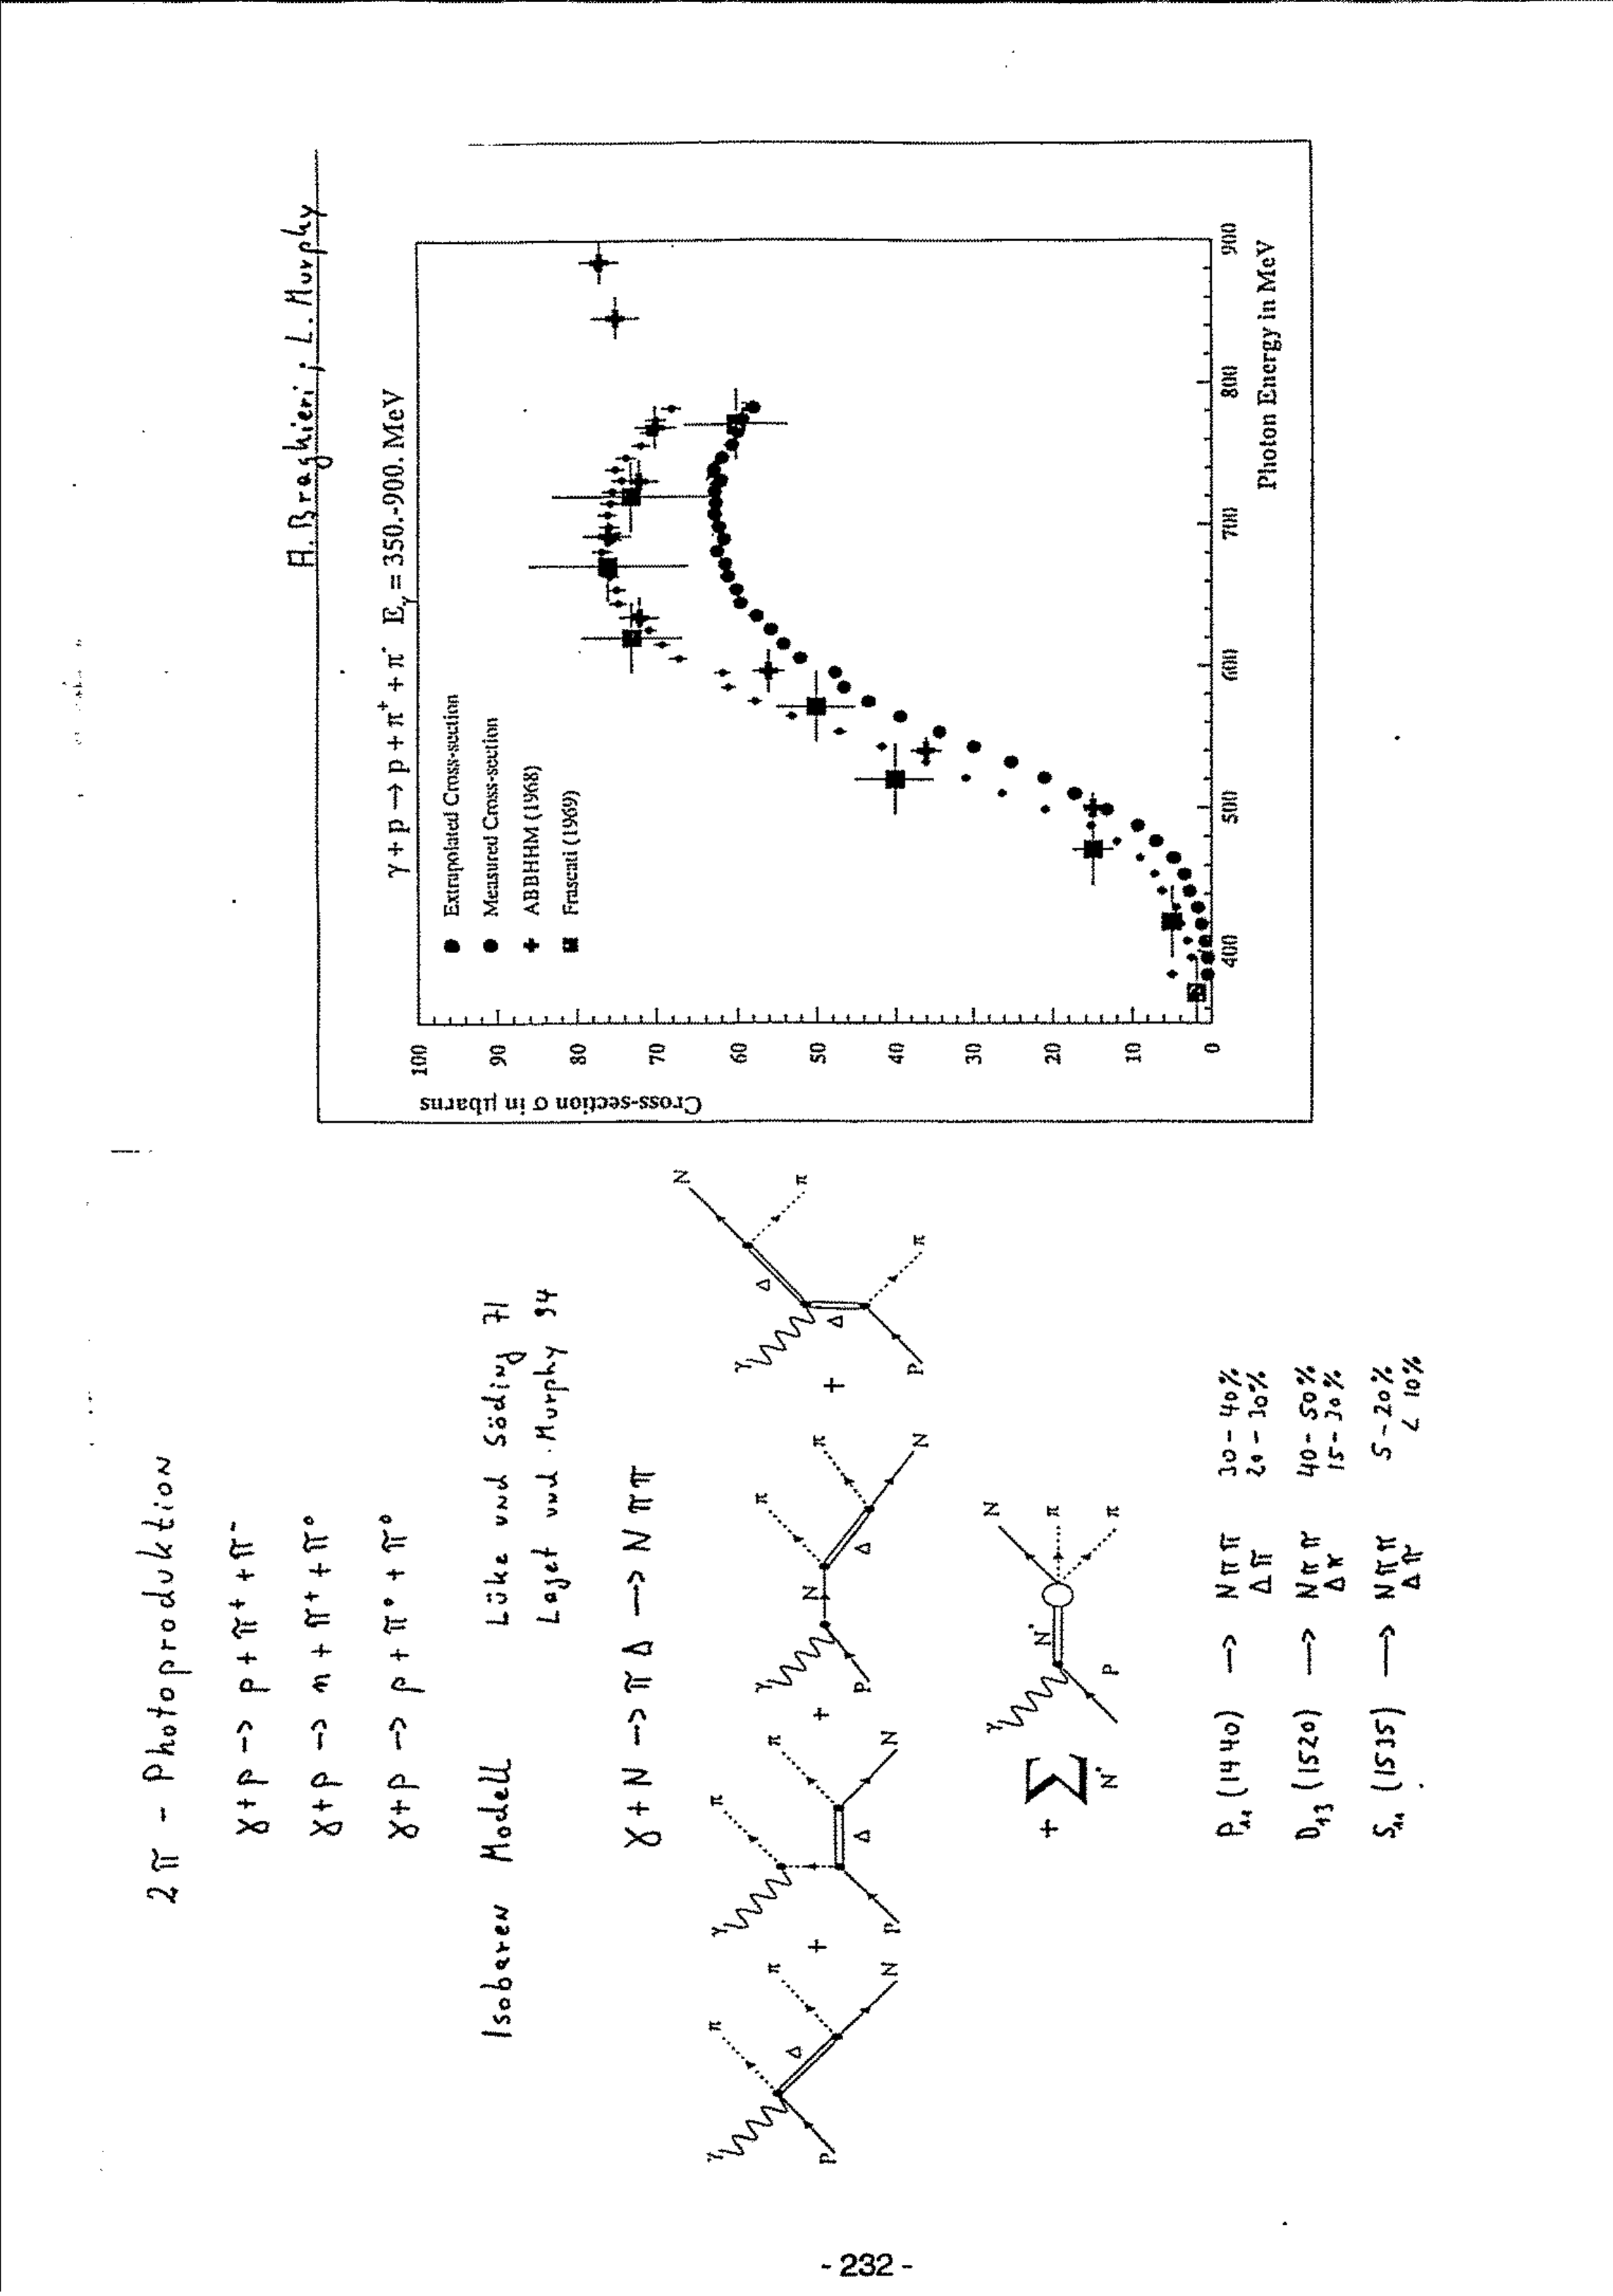 2π - Photoproduktion
γ+p -> p + π⁺ + π⁻
γ+p -> n + π⁺ + π⁰
γ+p -> p + π⁰ + π⁰
Isobaren Modell Lüke und Söding 71
Laget und Murphy 94
γ + N -> π Δ -> N π π
γ π π p Δ N
+
γ π π p Δ N
+
γ π π p N Δ N
+
γ N π π p Δ Δ
+ Σ N*
γ N π π p N*
P₁₁ (1440) -> Nππ 30 - 40%
Δπ 20 - 30%
D₁₃ (1520) -> Nππ 40 - 50%
Δπ 15 - 30%
S₁₁ (1535) -> Nππ 5 - 20%
Δπ < 10%
A. Braghieri ; L. Murphy
γ + p → p + π⁺ + π⁻ Eγ = 350.-900. MeV
Extrapolated Cross-section
Measured Cross-section
ABBHHM (1968)
Frascati (1969)
Cross-section σ in μbarns
100
90
80
70
60
50
40
30
20
10
0
400 500 600 700 800 900
Photon Energy in MeV
- 232 -